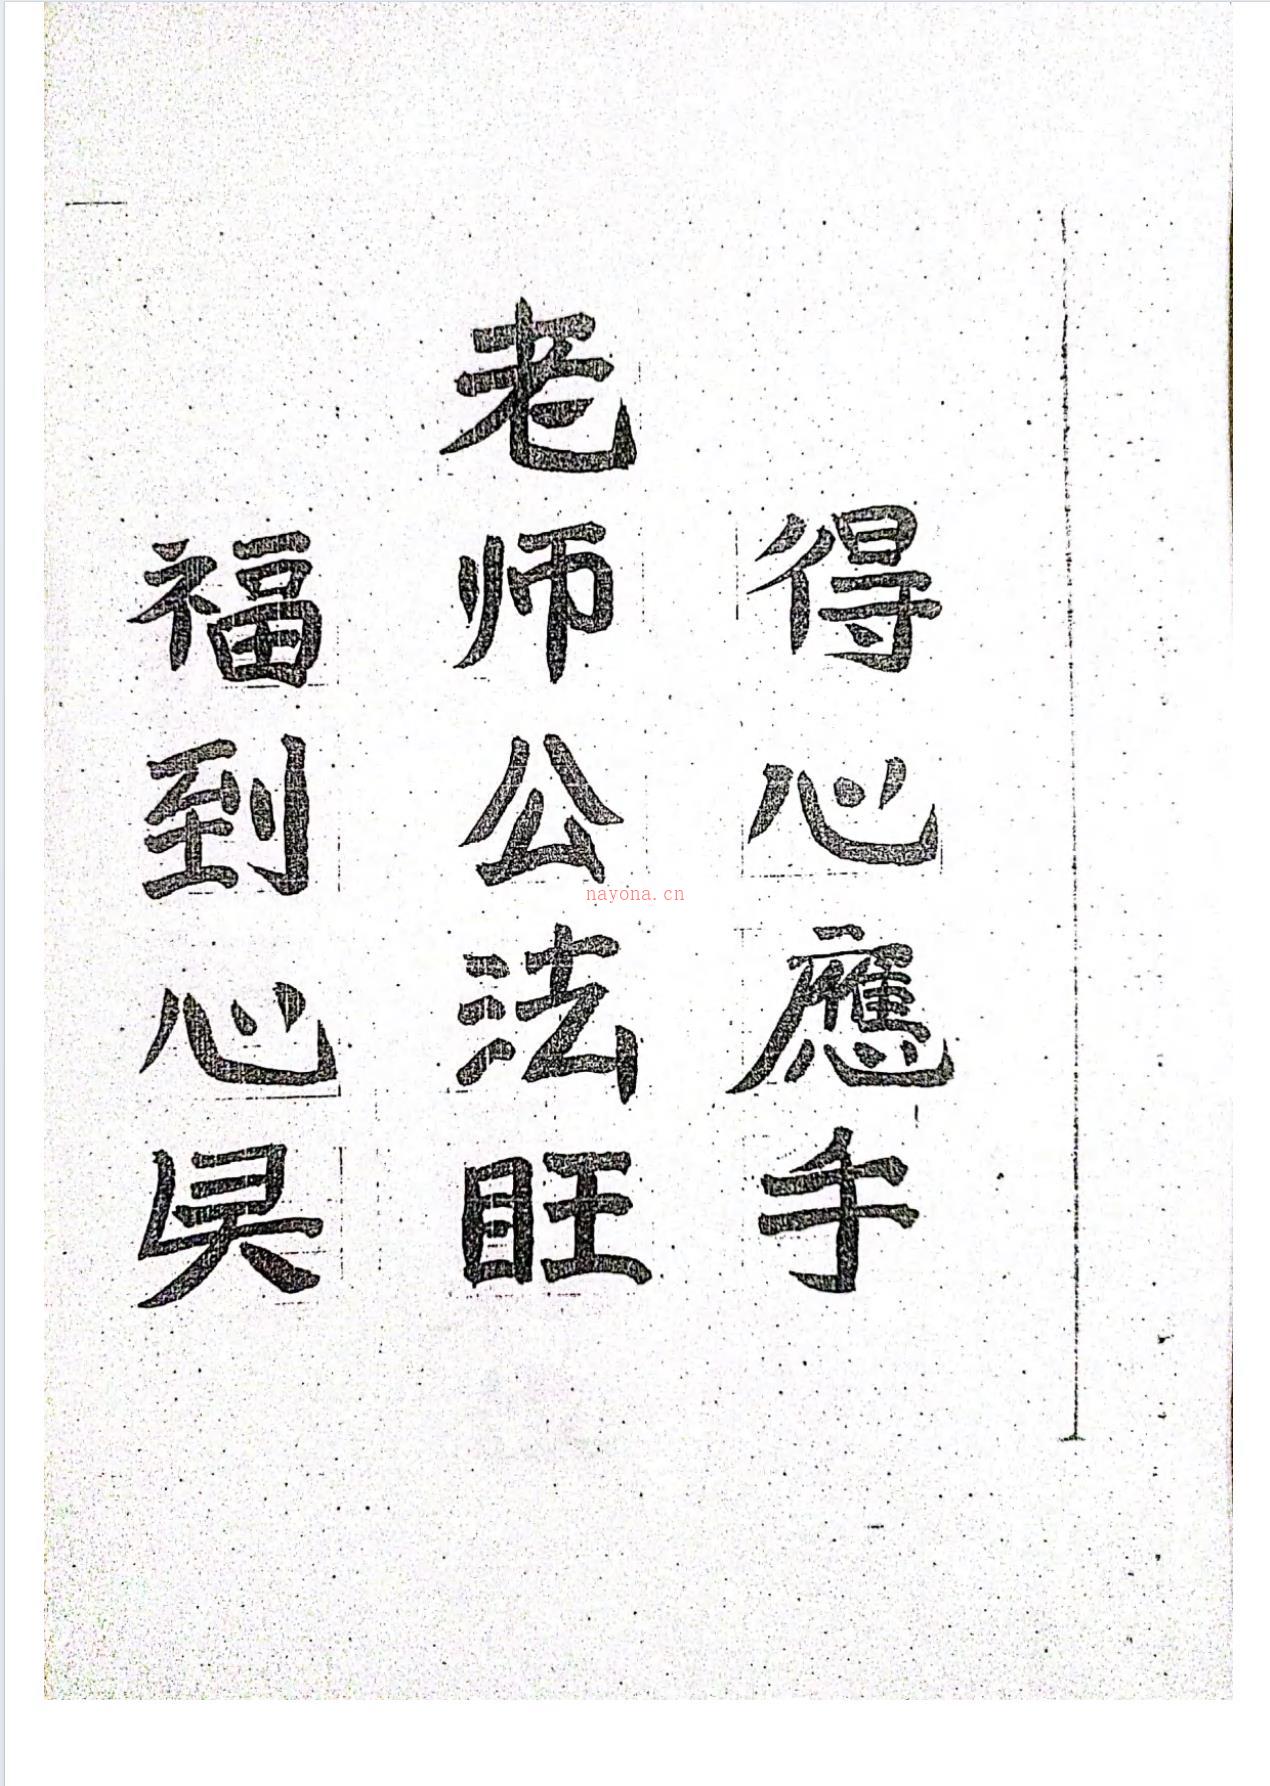 得心應手
老师公法旺
福到心
nayona.cn